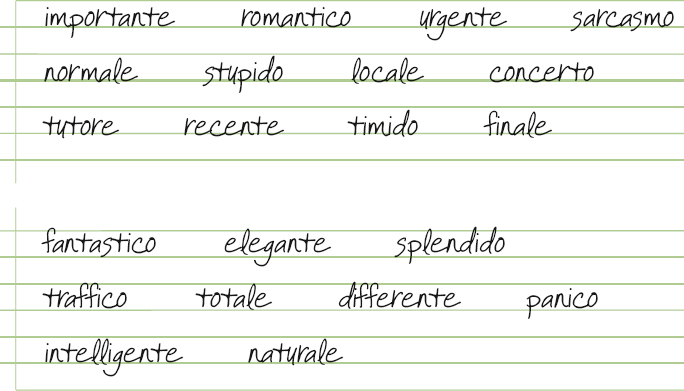 importante romantico urgente sarcasmo
normale stupido locale concerto
tutore recente timido finale
fantastico elegante splendido
traffico totale differente panico
intelligente naturale